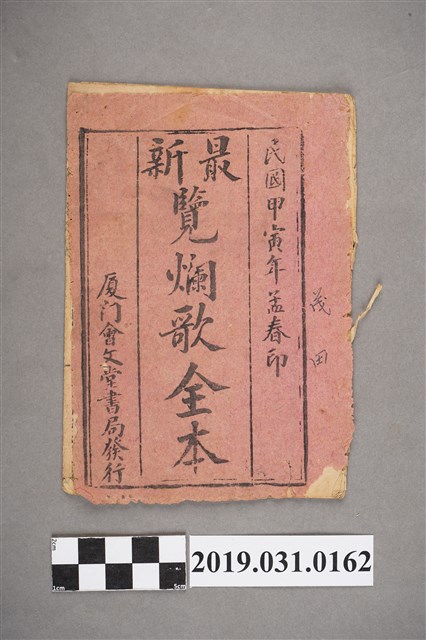 民國甲寅年孟春印
最新
覽爛歌全本
厦门會文堂書局發行
茂田
2cm
1cm
5cm
2019.031.0162